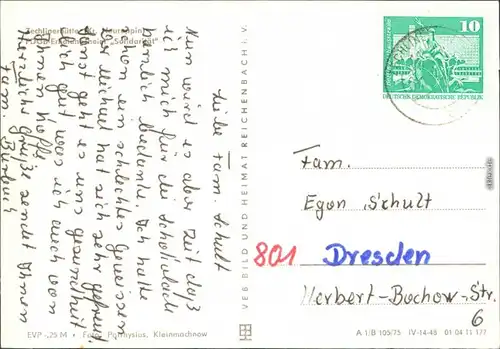 Zechlinerhütte
FDGB-Erholungsheim "Solidarität"
Liebe Fam. Schult
Nun wird es aber Zeit daß
ich mich für die Schokolade
herzlich bedanke. Ich hatte
schon ein schlechtes Gewissen
der Michael hat sich sehr gefreut.
Sonst geht es uns gesundheitl.
auch gut was ich auch von
Ihnen hoffe.
Herzliche Grüße sendet Ihnen
Fam.
VEB BILD UND HEIMAT REICHENBACH i. V.
10
DEUTSCHE DEMOKRATISCHE REPUBLIK
Fam.
Egon Schult
801 Dresden
Herbert-Bochow-Str.
6
EVP -,25 M • Foto: Parthysius, Kleinmachnow
A 1/B 105/75 IV-14-45 01 04 11 177